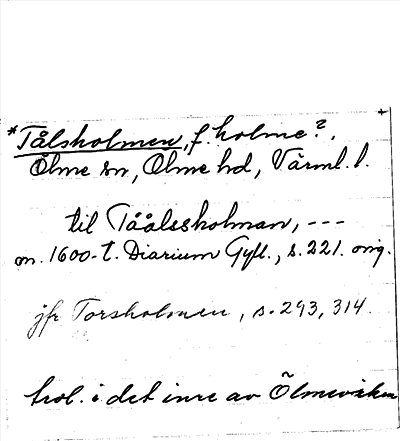 *Tålsholmen, f. holme?.
Ölme sn, Ölme hd, Värml. l.
til Tåålssholman, ---
m. 1600-t. Diarium Gyll., s. 221. orig.
jfr Torsholmen, s. 293, 314.
trol. i det inre av Ölmeviken